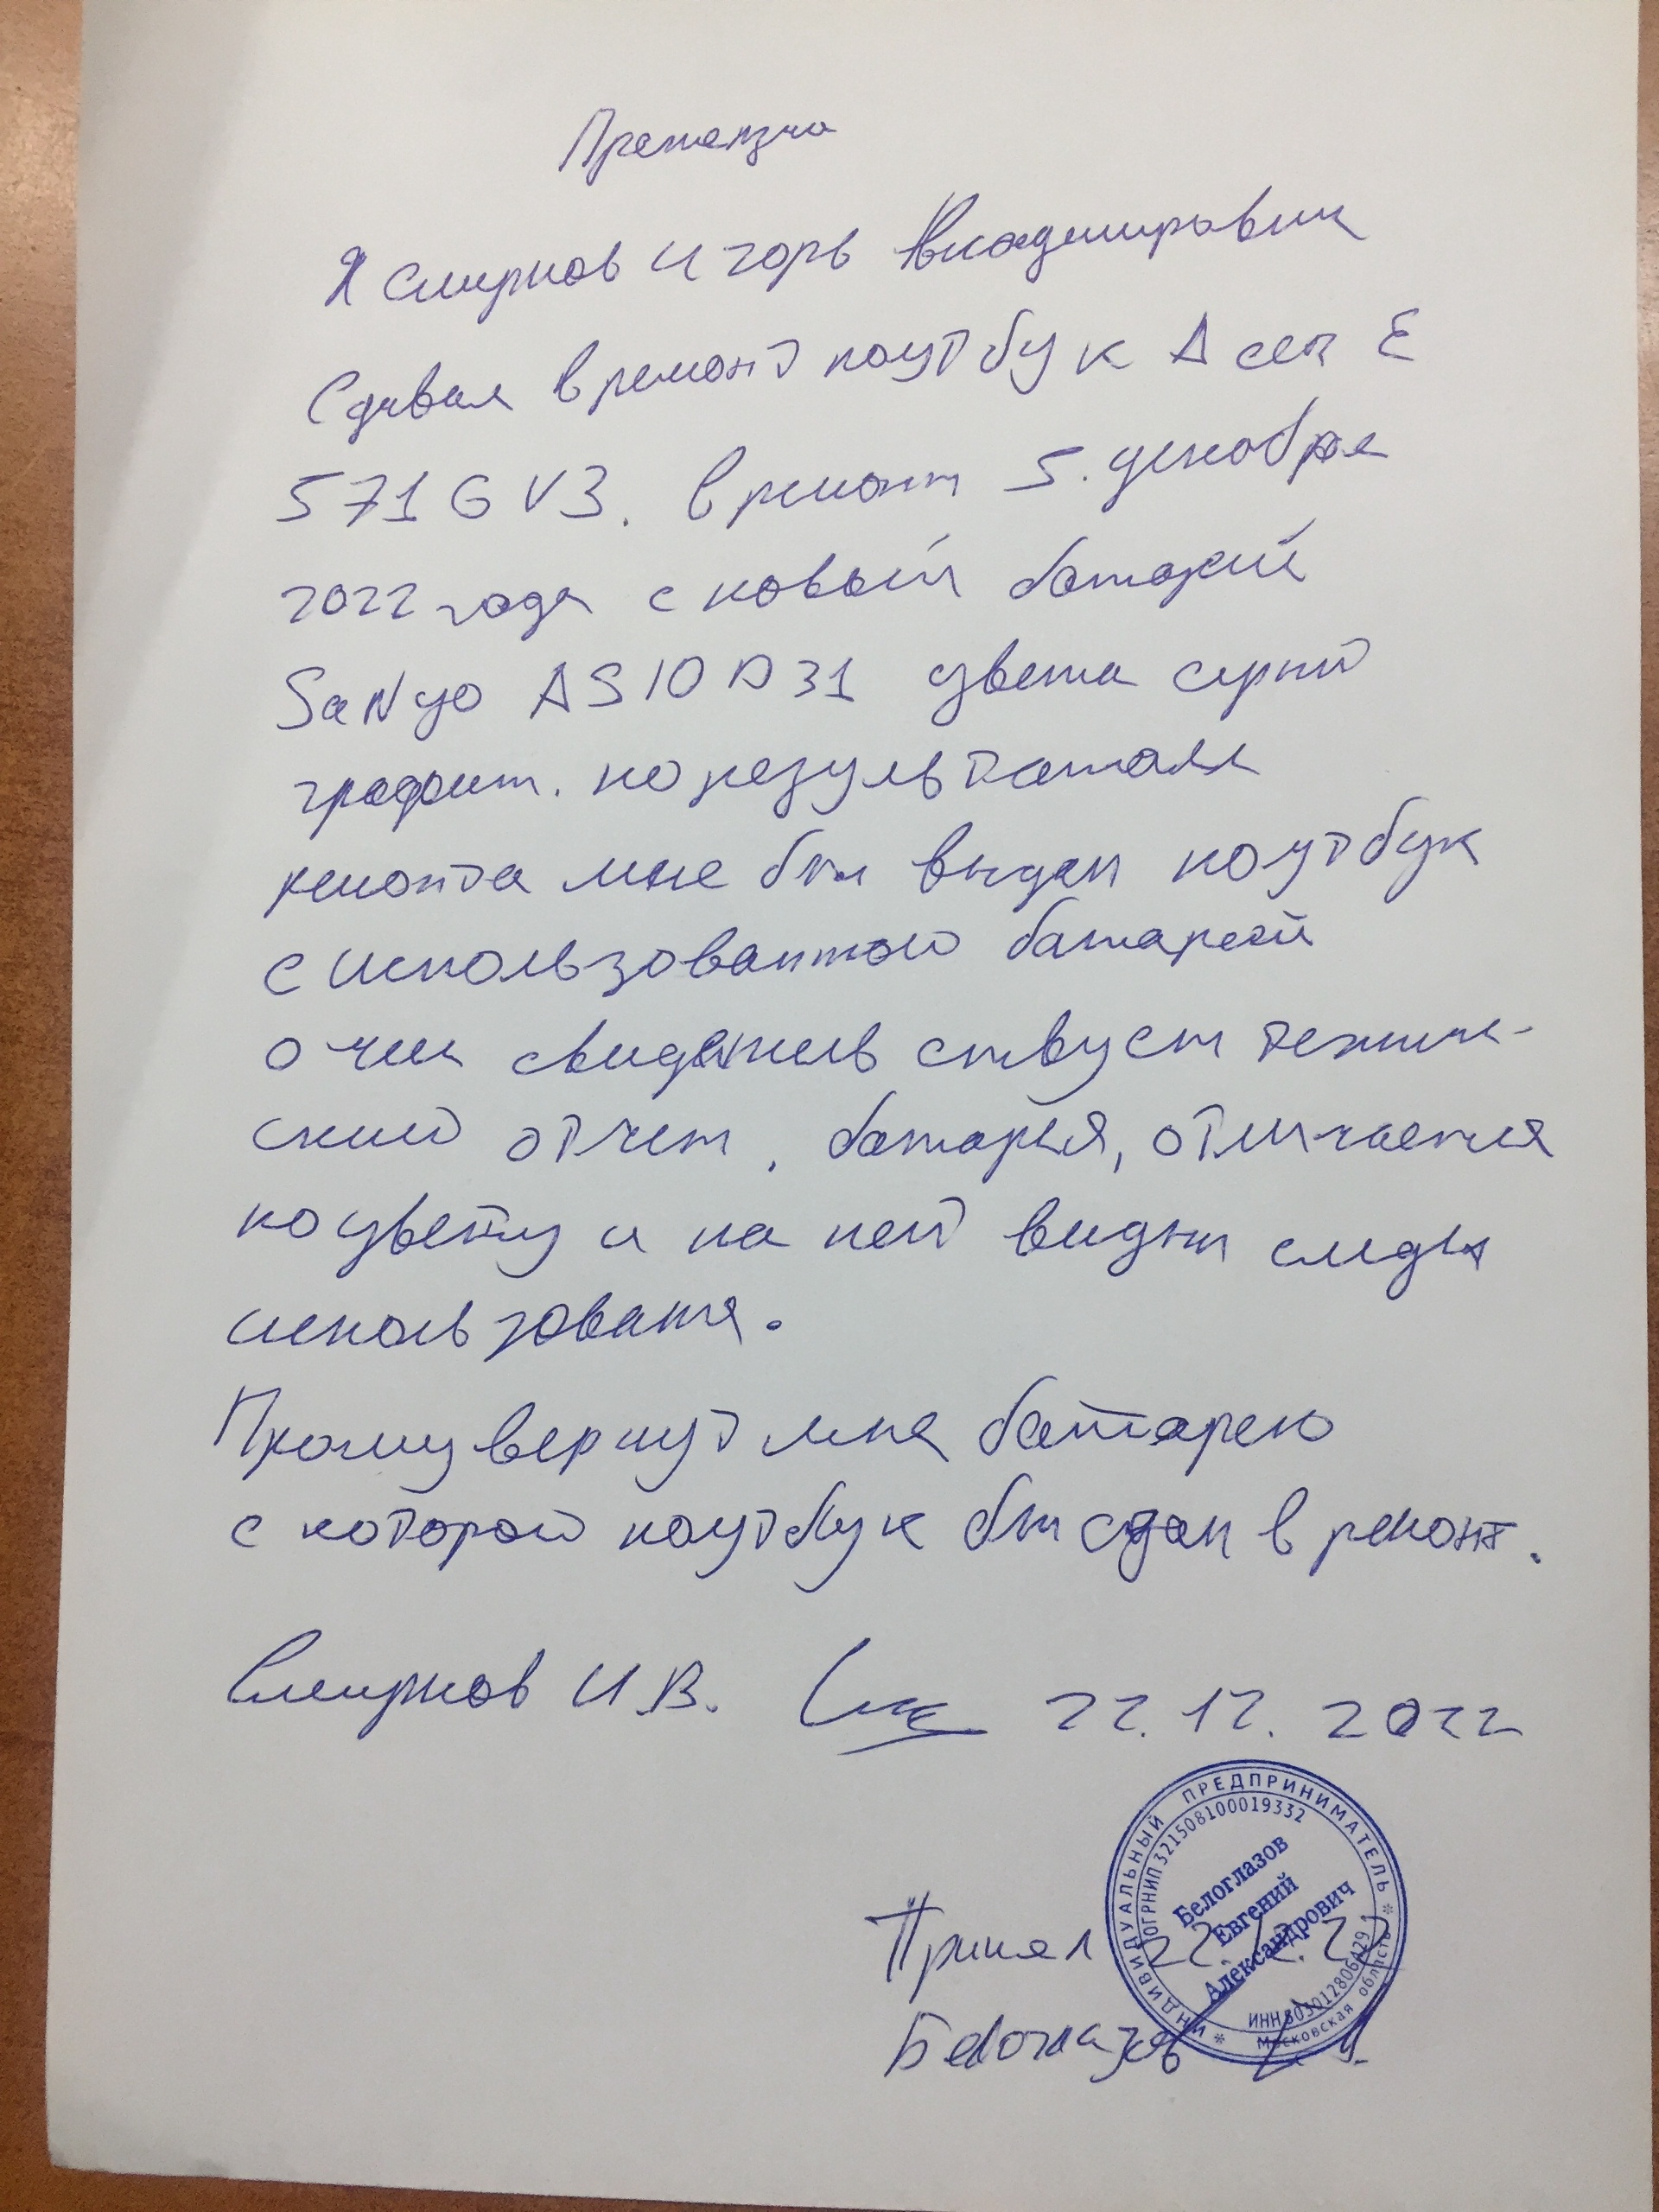 Претензия
Я Смирнов Игорь Владимирович
Сдавал в ремонт ноутбук Acer E
571G V3. в ремонт 5. декабря
2022 года с новый батарей
SaNyo AS10D31 цвета серый
графит. по результатам
ремонта мне был выдан ноутбук
с использованной батареей
о чем свидетельствует техниче-
ский отчет. батарея, отличается
по цвету и на ней видны следы
использования.
Прошу вернуть мне батарею
с которой ноутбук был сдан в ремонт.
Смирнов И.В. 22.12.2022
ИНДИВИДУАЛЬНЫЙ ПРЕДПРИНИМАТЕЛЬ
ОГРНИП 321508100019332
Белоглазов
Евгений
Александрович
ИНН
Московская область
Принял 22.12.22
Белоглазов Е.А.